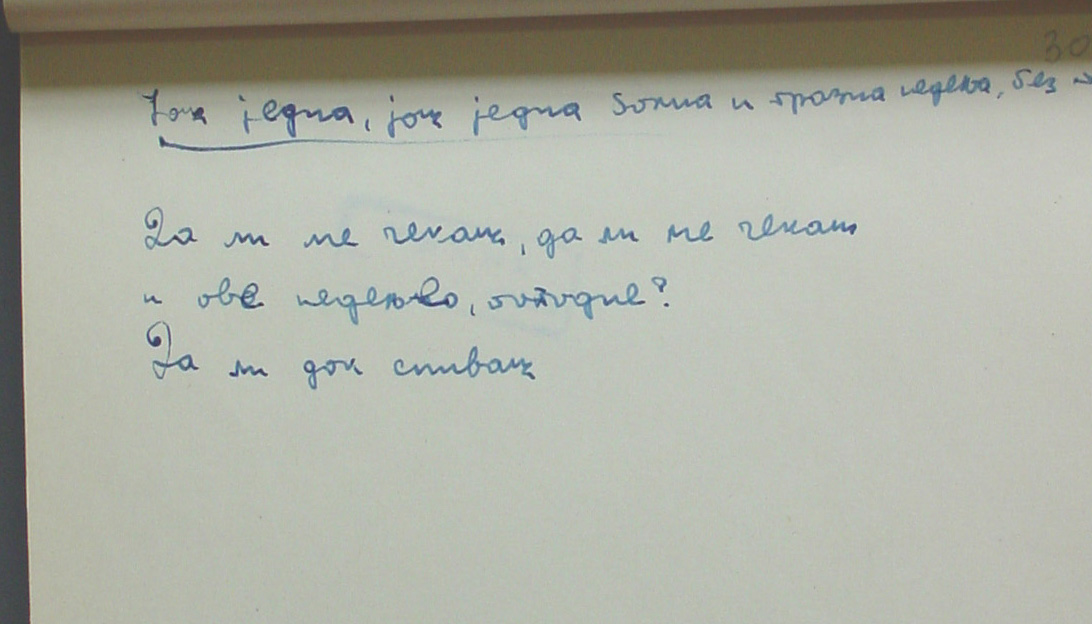 30
Још једна, још једна болна и празна недеља, без
Да ли ме чекаш, да ли ме чекаш
и ове недеље, поподне?
Да ли док сниваш